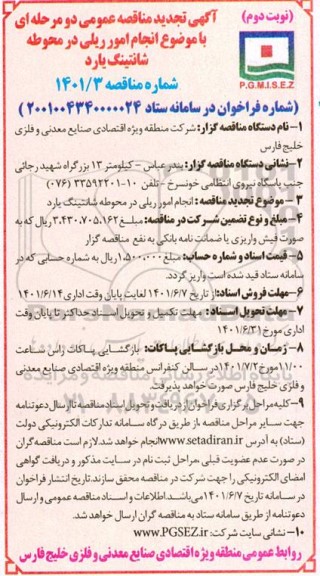 (نوبت دوم)
آگهی تجدید مناقصه عمومی دو مرحله ای
با موضوع انجام امور ریلی در محوطه
شانتینگ یارد
P.G.M.I.S.E.Z
شماره مناقصه ۱۴۰۱/۳
(شماره فراخوان در سامانه ستاد ۲۰۰۱۰۰۴۳۴۰۰۰۰۰۲۴)
۱-نام دستگاه مناقصه گزار: شرکت منطقه ویژه اقتصادی صنایع معدنی و فلزی
خلیج فارس
۲-نشانی دستگاه مناقصه گزار: بندرعباس - کیلومتر ۱۳ بزرگراه شهید رجائی
جنب پاسگاه نیروی انتظامی خونسرخ -تلفن ۱۰-۳۳۵۹۲۲۰۱ (۰۷۶)
۳- موضوع تجدید مناقصه: انجام امور ریلی در محوطه شانتینگ یارد
۴-مبلغ و نوع تضمین شرکت در مناقصه: مبلغ ۳,۴۳۰,۷۰۵,۱۶۲ ریال که به
صورت فیش واریزی یا ضمانت نامه بانکی به نفع مناقصه گزار
۵- قیمت اسناد و شماره حساب: مبلغ ۱,۵۰۰,۰۰۰ ریال به شماره حسابی که در
سامانه ستاد قید شده است واریز گردد.
۶-مهلت فروش اسناد: از تاریخ ۱۴۰۱/۶/۷ لغایت پایان وقت اداری ۱۴۰۱/۶/۱۴
۷-مهلت تحویل اسناد: مهلت تکمیل و تحویل اسناد حداکثر تا پایان وقت
اداری مورخ ۱۴۰۱/۶/۳۱
۸- زمان و محل بازگشایی پاکات: بازگشایی پاکات راس ساعت
۱۱/۰۰ مورخ ۱۴۰۱/۷/۲ در سالن کنفرانس منطقه ویژه اقتصادی صنایع معدنی
و فلزی خلیج فارس صورت خواهد پذیرفت.
۹-کلیه مراحل برگزاری فراخوان از دریافت و تحویل اسناد مناقصه تا ارسال دعوتنامه
جهت سایر مراحل مناقصه از طریق درگاه سامانه تدارکات الکترونیکی دولت
(ستاد) به آدرس www.setadiran.ir انجام خواهد شد. لازم است مناقصه گران
در صورت عدم عضویت قبلی، مراحل ثبت نام در سایت مذکور و دریافت گواهی
امضای الکترونیکی را جهت شرکت در مناقصه محقق سازند. تاریخ انتشار فراخوان
در سامانه تاریخ ۱۴۰۱/۶/۷ می باشد. اطلاعات و اسناد مناقصه عمومی و ارسال
دعوتنامه از طریق سامانه ستاد به مناقصه گران ارسال خواهد شد.
۱۰- نشانی سایت شرکت: www.PGSEZ.ir
روابط عمومی منطقه ویژه اقتصادی صنایع معدنی و فلزی خلیج فارس